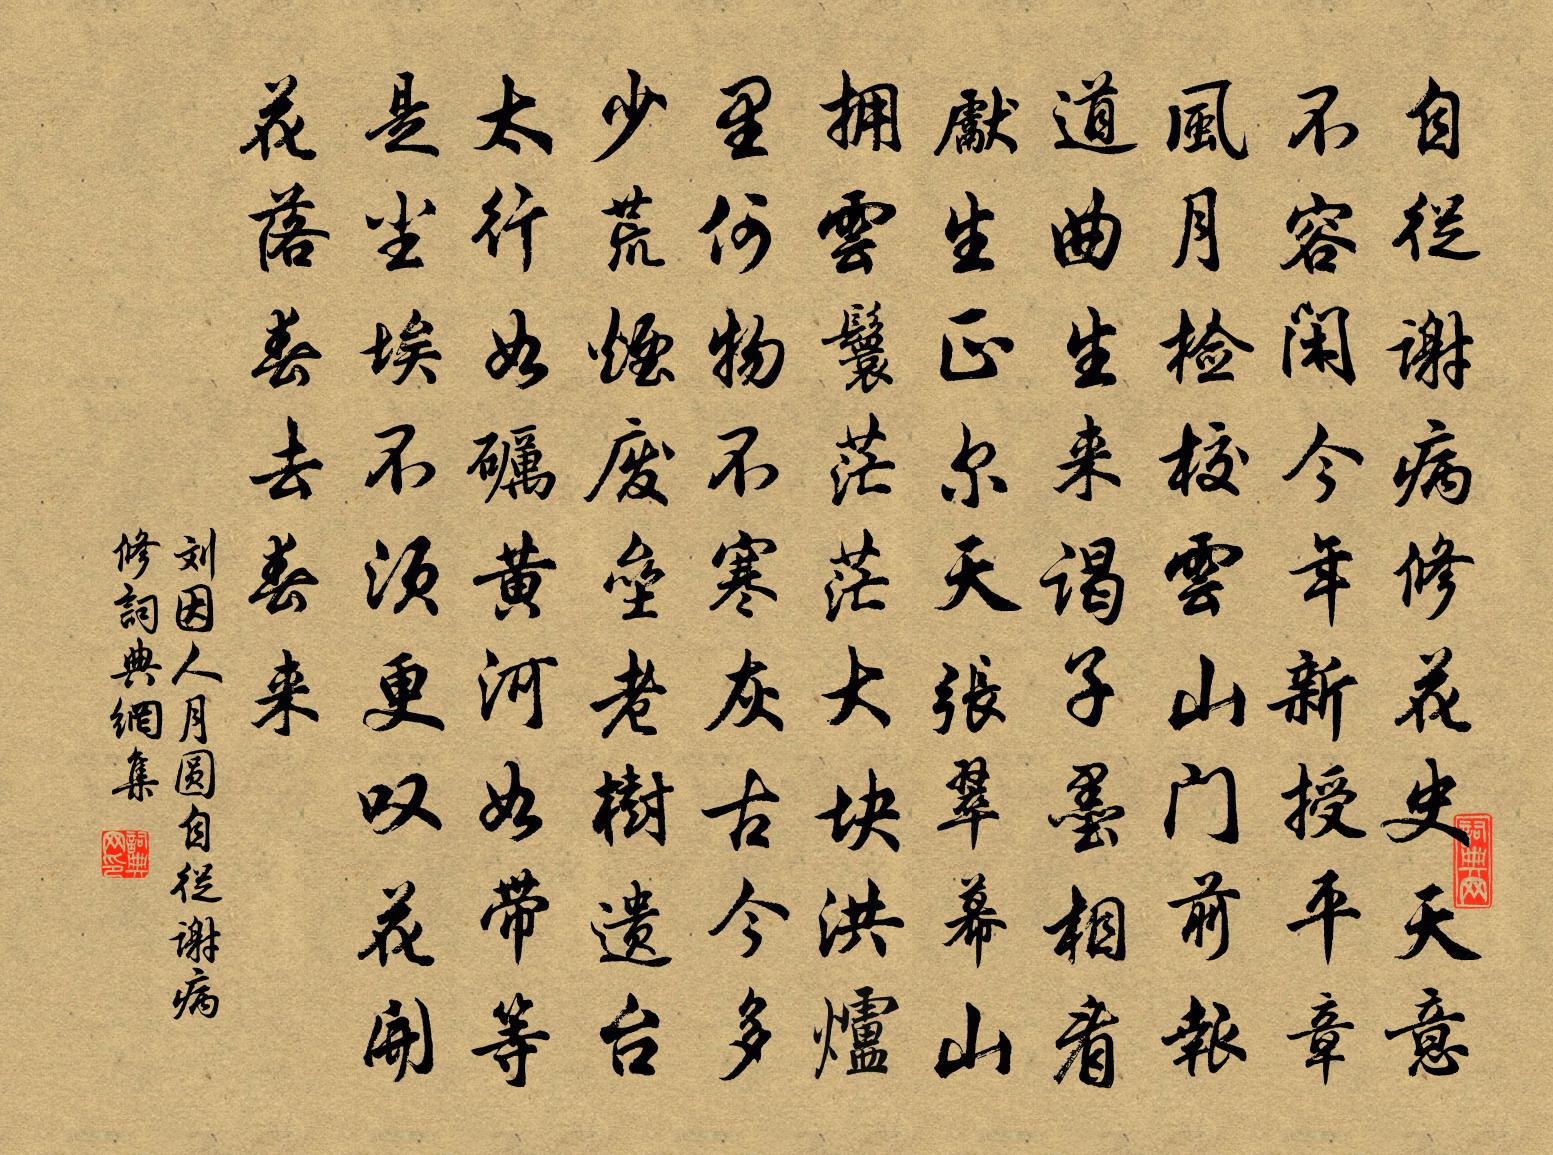 自從谢病修花史天意
不容闲今年新授平章
風月检校雲山门前報
道曲生来谒子墨相看
獻生正尔天張翠幕山
拥雲鬟茫茫大块洪爐
里何物不寒灰古今多
少荒煙廢壘老樹遗台
太行如礪黄河如带等
是尘埃不须更叹花開
花落春去春来
刘因人月圆自從谢病
修詞典網集
詞典网
詞典网印